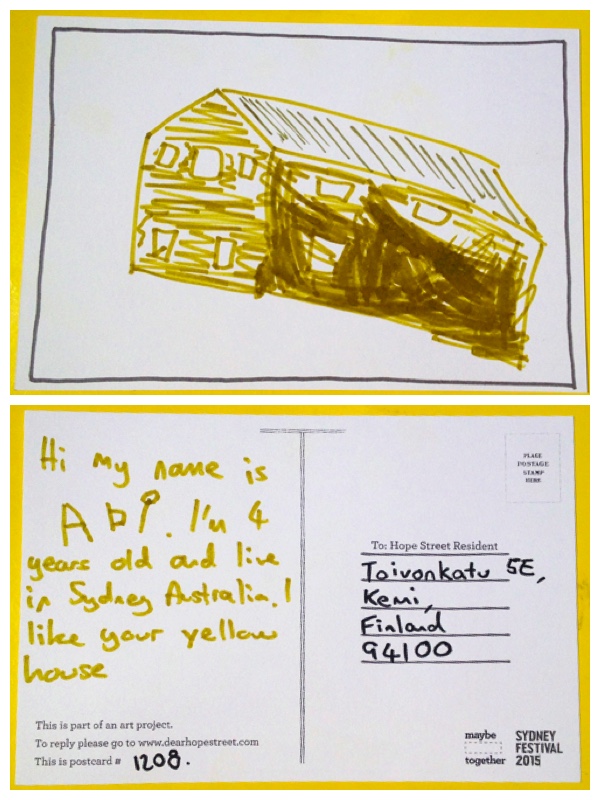 Hi my name is
Abi. I'm 4
years old and live
in Sydney Australia. I
like your yellow
house
This is part of an art project.
To reply please go to www.dearhopestreet.com
This is postcard # 1208.
PLACE
POSTAGE
STAMP
HERE
To: Hope Street Resident
Toivonkatu 5E,
Kemi,
Finland
94100
maybe
together
SYDNEY
FESTIVAL
2015